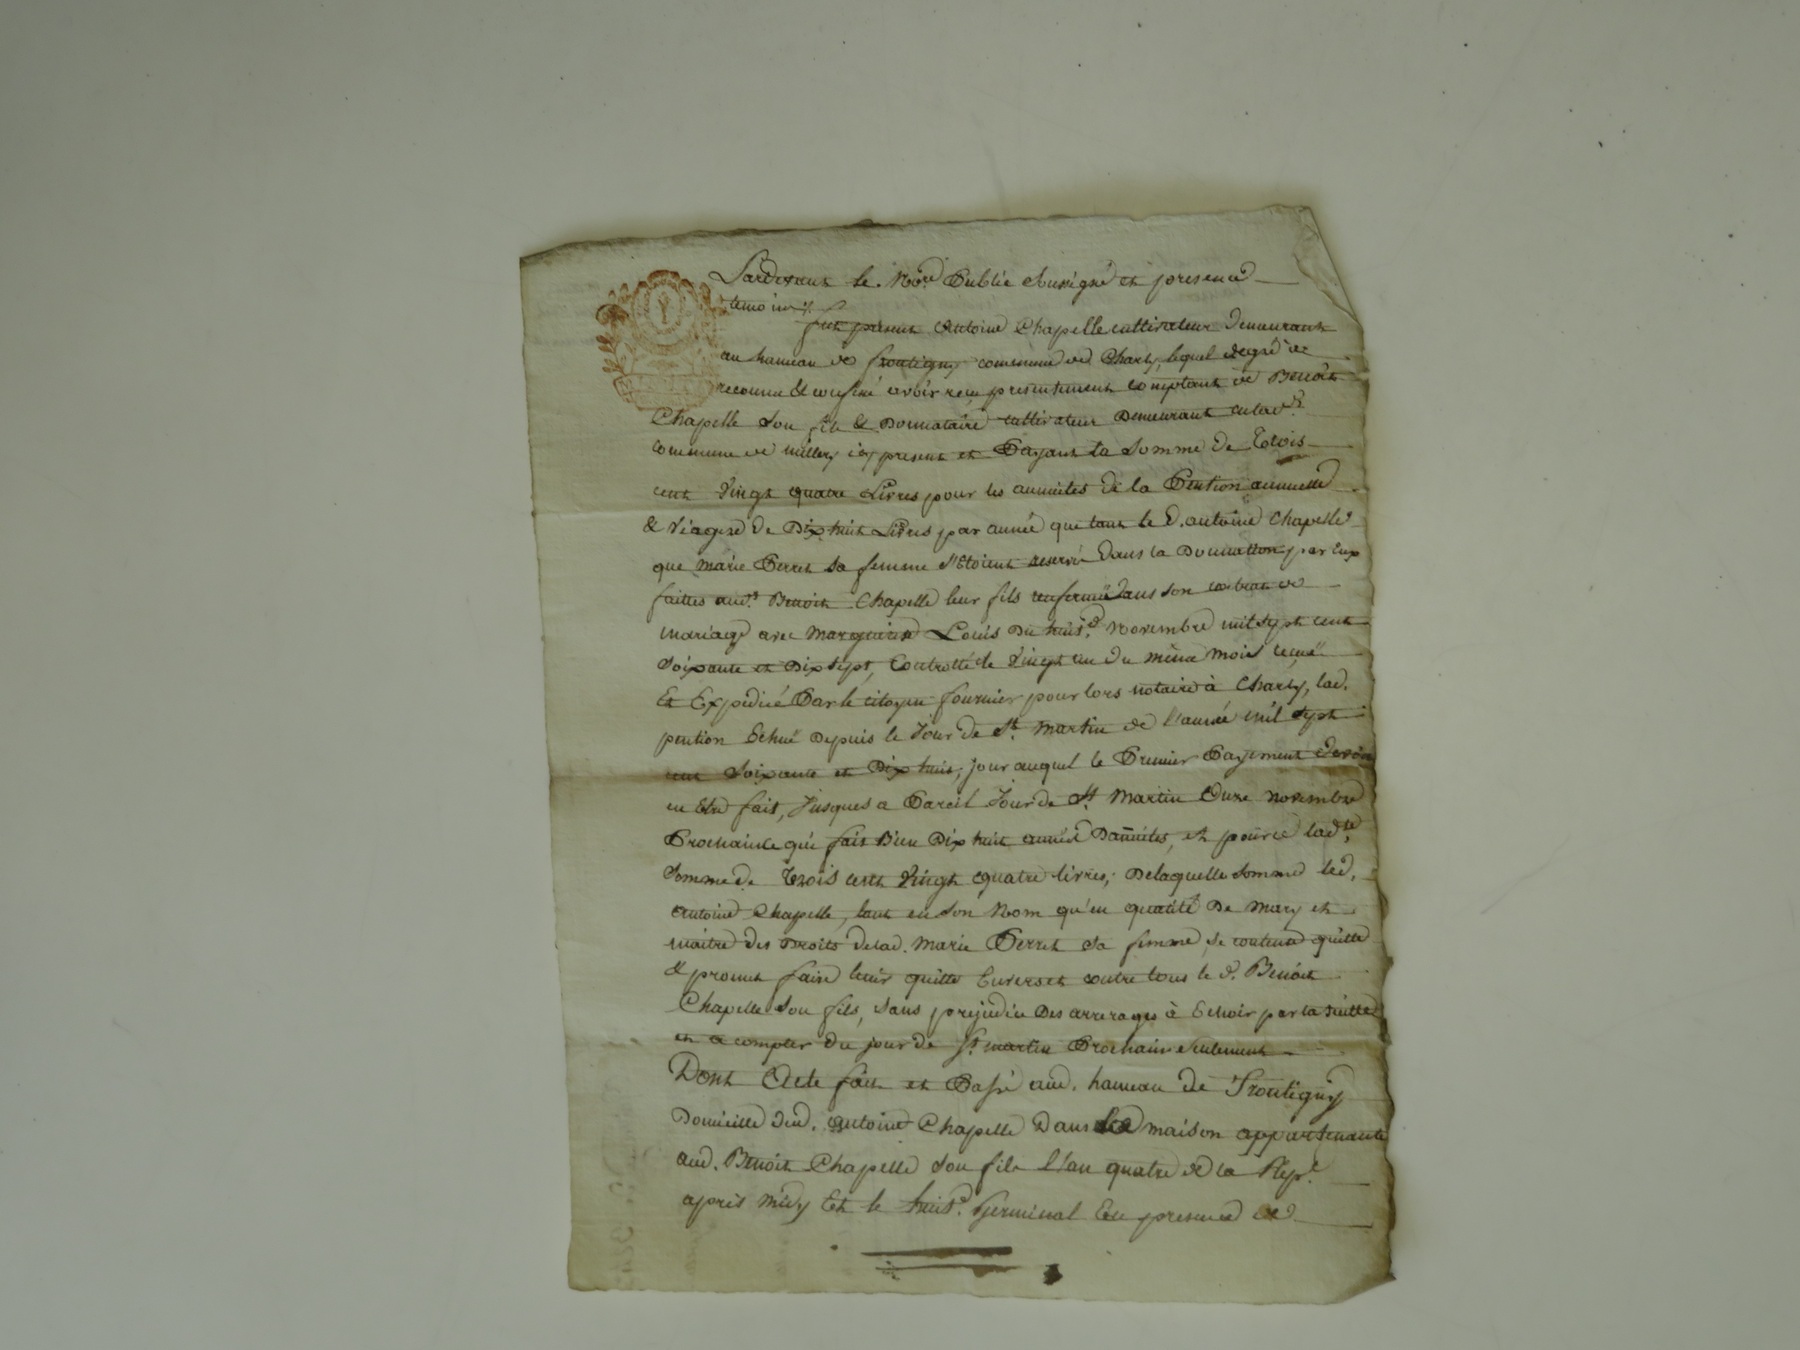 Pardevant le No.re Public Soussigné et presence
temoins
fut present Antoine Chapelle cultivateur demeurant
au hameau de frontigny commune de Charly, lequel de gré a
reconnu & confessé avoir reçu presentement comptant de Benoit
Chapelle son fils & Donnataire cultivateur Demeurant en lad.te
commune de millery icy present et Payant la somme de Trois
cent vingt quatre Livres pour les annuites de la Pention annuelle
& viagere de Dix huit Livres par année que tant le d. antoine Chapelle
que marie Perret sa femme s'etoient reservé dans la Donnation par Eux
faittes aud.t Benoit Chapelle leur fils renfermé dans son contrat de
mariage avec Marguerite Louis Du huit.e Novembre mil sept cent
soixante et Dix sept, Controllé le vingt un du même mois reçu
Et Expedié Par le citoyen fournier pour lors notaire à Charly, lad.
pention Echuë Depuis le Jour de St. Martin de l'année mil sept
cent soixante et Dix huit, jour auquel le Premier Payement devoit
en Etre fait, Jusques a Pareil Jour de St Martin Onze novembre
Prochain ce qui fait Bien Dix huit année D'annuites, et pour ce lad.te
Somme de Trois cent vingt quatre livres; De laquelle somme led.
antoine Chapelle, tant en son Nom qu'en qualité De mary et
maitre des Droits de lad. Marie Perret sa femme, se contente quitte
& promet faire tenir quitte Envers et contre tous le d. Benoit
Chapelle son fils, sans prejudice Des arrerages à Echoir par la suitte
et a compter du jour de St martin Prochain seulement
Dont Acte fait et Passé aud. hameau de Frontigny
Domicille dud. Antoine Chapelle Dans la maison appartenante
aud. Benoit Chapelle son fils l'an quatre de la Rep.e
après midy Et le huit.e Germinal En presence de